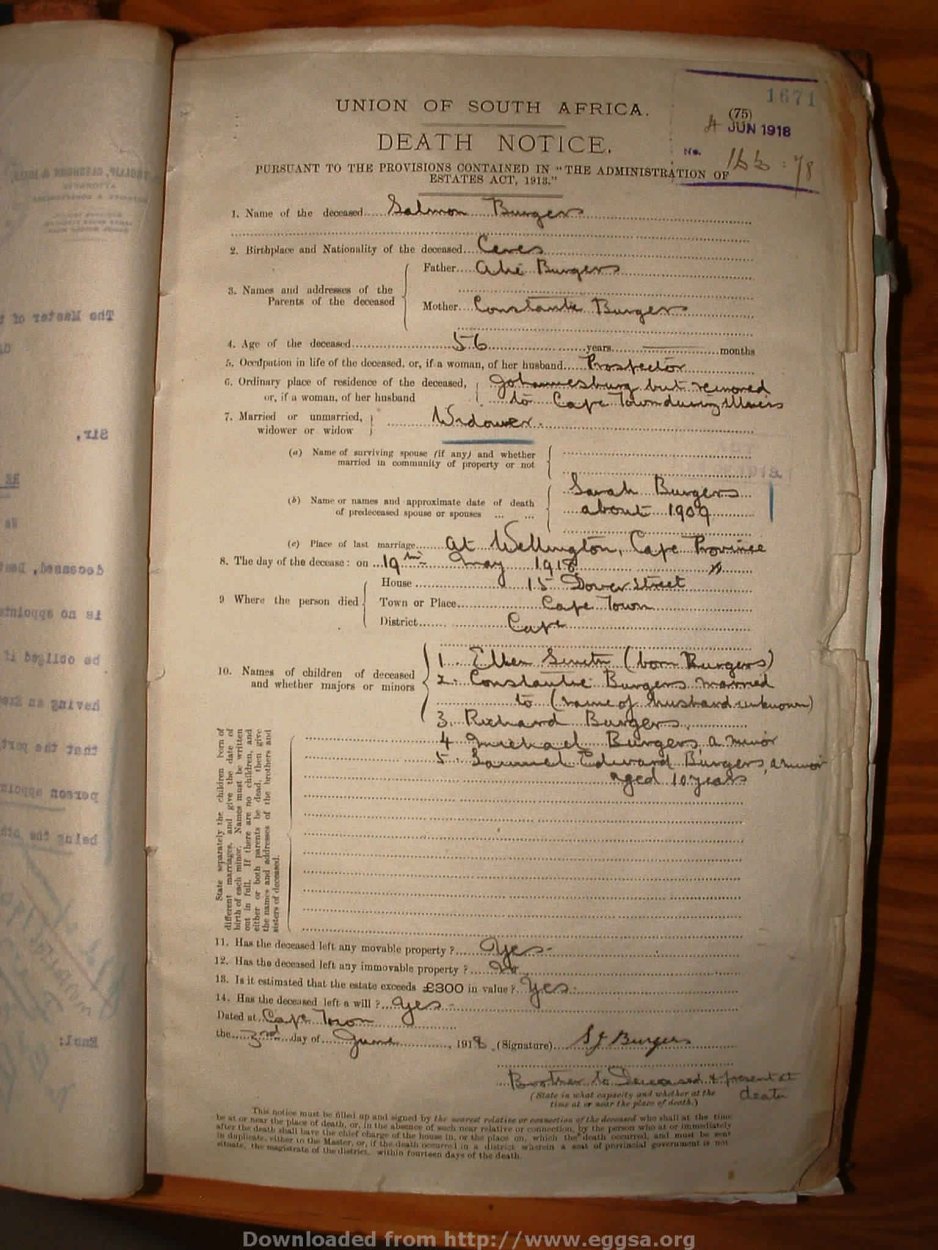 1671
UNION OF SOUTH AFRICA.
(75)
4 JUN 1918
DEATH NOTICE.
No.
PURSUANT TO THE PROVISIONS CONTAINED IN "THE ADMINISTRATION OF
ESTATES ACT, 1913."
1. Name of the deceased Salmon Burgers
2. Birthplace and Nationality of the deceased Ceres
3. Names and addresses of the Parents of the deceased
Father Burgers
Mother Constantia Burgers
4. Age of the deceased 56 years months
5. Occupation in life of the deceased, or, if a woman, of her husband Prospector
6. Ordinary place of residence of the deceased, Johannesburg but removed
or, if a woman, of her husband to Cape Town during illness
7. Married or unmarried,
widower or widow Widower.
(a) Name of surviving spouse (if any) and whether
married in community of property or not
(b) Name or names and approximate date of death Sarah Burgers
of predeceased spouse or spouses ... ... about 1909
(c) Place of last marriage At Wellington, Cape Province
8. The day of the decease: on 19th May 1918
9 Where the person died
House 15 Dover Street
Town or Place Cape Town
District Cape
10. Names of children of deceased
and whether majors or minors
1. Ellen Smit (born Burgers)
2. Constantia Burgers married
to (name of husband unknown)
3. Richard Burgers
4 Michael Burgers a minor
5. Samuel Edward Burgers, a minor
aged 10 years
State separately the children born of
different marriages, and give the date of
birth of each minor. Names must be written
out in full. If there are no children, and
either or both parents be dead, then give
the names and addresses of the brothers and
sisters of deceased.
11. Has the deceased left any movable property ? Yes -
12. Has the deceased left any immovable property ? No
13. Is it estimated that the estate exceeds £300 in value ? Yes.
14. Has the deceased left a will ? Yes -
Dated at Cape Town
the 3rd day of June 1918. (Signature) Burgers
Brother to Deceased & present at
death
(State in what capacity and whether at the
time at or near the place of death)
This notice must be filled up and signed by the nearest relative or connection of the deceased who shall at the time
be at or near the place of death, or, in the absence of such near relative or connection, by the person who at or immediately
after the death shall have the chief charge of the house in, or the place on, which the death occurred, and must be sent
in duplicate, either to the Master, or, if the death occurred in a district wherein a seat of provincial government is not
situate, the magistrate of the district, within fourteen days of the death.
Downloaded from http://www.eggsa.org